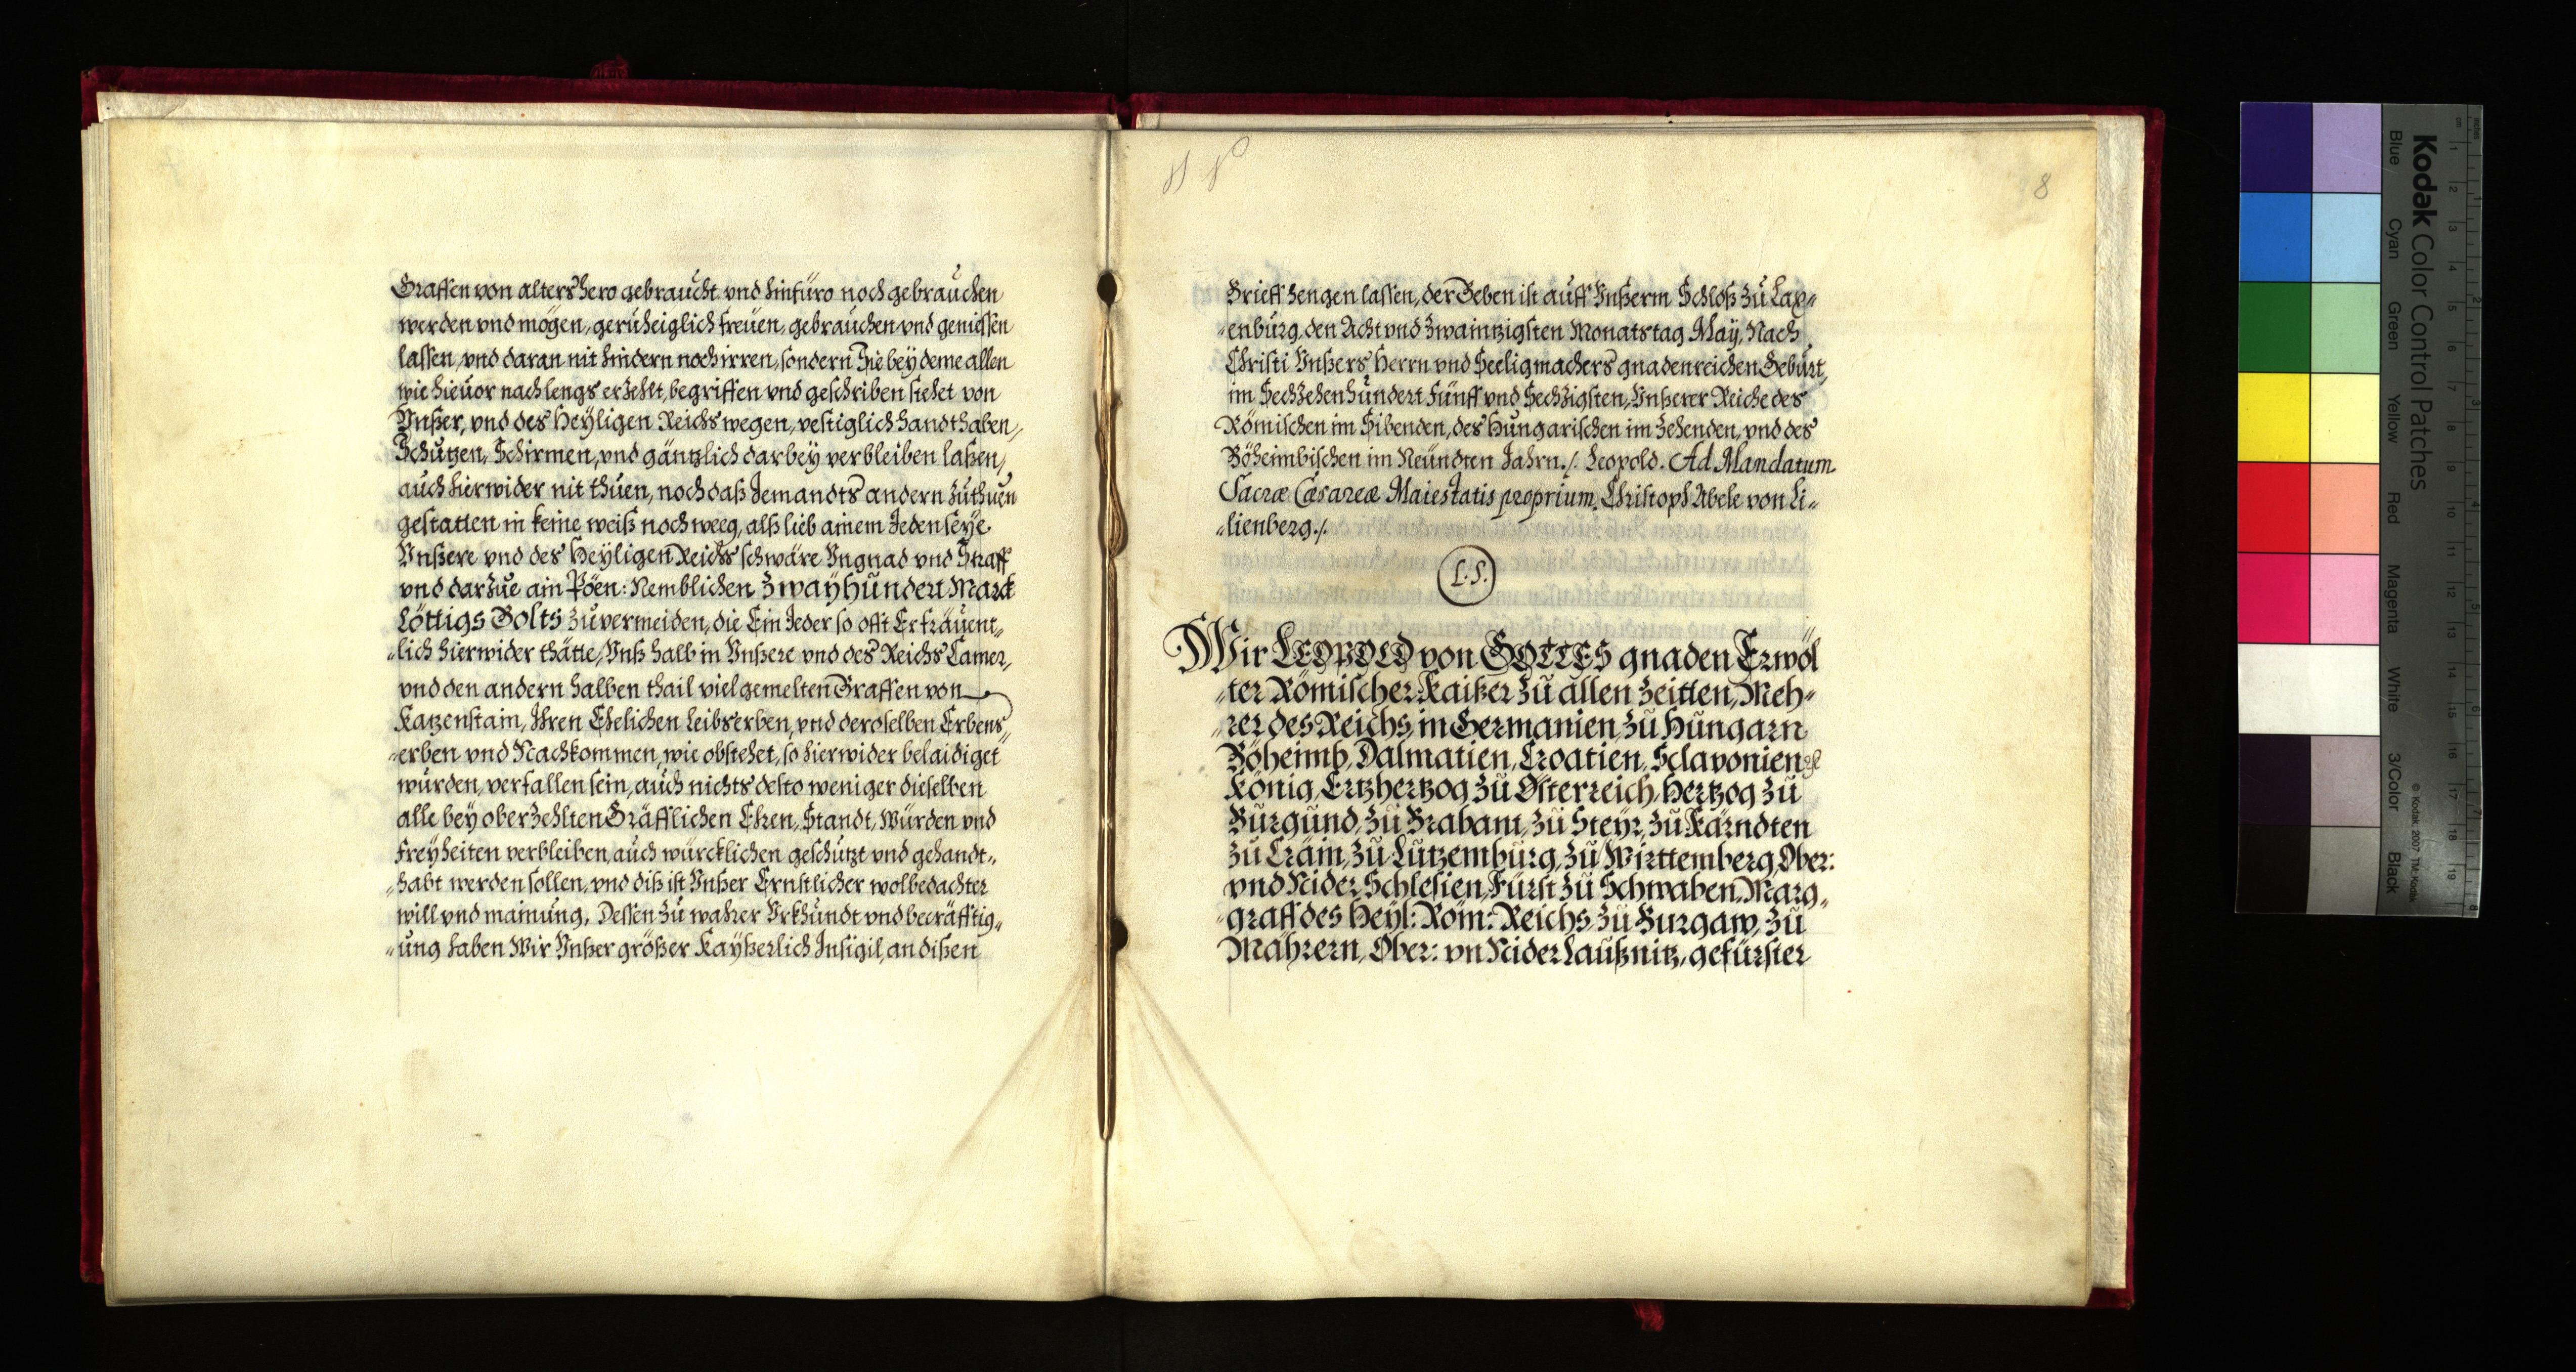 Graffen von alters hero gebraucht vnd hinfüro noch gebrauchen
werden vnd mögen, geruheiglich freüen, gebrauchen vnd geniessen
lassen, vnd daran nit hindern noch irren, sondern Sie bey deme allen
wie hieuor nach lengs erzehlt, begriffen vnd geschriben stehet von
Vnßer, vnd des Heyligen Reichs wegen, vestiglich handthaben,
Schutzen, Schirmen, vnd gäntzlich darbey verbleiben laßen,
auch hierwider nit thuen, noch daß Jemandts andern zuthuen
gestatten in keine weiß noch weeg, alß lieb ainem Jeden seye
Vnßere vnd des Heyligen Reichs schwäre Vngnad vnd Straff
vnd darzue ain Pöen: Nemblichen Zwayhundert Marck
Löttigs Golts zuvermeiden, die Ein Jeder so offt Er fräuent„
„lich hierwider thätte, Vnß halb in Vnßere vnd des Reichs Camer,
vnd den andern halben thail vielgemelten Graffen von
Katzenstain, Ihren Ehelichen Leibserben, vnd deroselben Erbens„
„erben vnd Nachkommen, wie obstehet, so hierwider belaidiget
wurden, verfallen sein, auch nichts desto weniger dieselben
alle bey oberzehlten Gräfflichen Ehren, Standt, Würden vnd
Freyheiten verbleiben, auch würcklichen geschutzt vnd gehandt„
„habt werden sollen, vnd diß ist Vnßer Ernstlicher wolbedachter
will vnd mainung. Dessen zu wahrer Vrkhundt vnd becräfftig„
„ung haben Wir Vnßer größer Kayßerlich Insigil, an dißen
8
Brieff hengen lassen, der Geben ist auff Vnßerm Schloß zu Lax„
„enburg, den Acht vnd Zwaintzigsten Monatstag May, Nach
Christi Vnßers Herrn vnd Seeligmachers gnadenreichen Geburt,
im Sechzehenhundert Fünff vnd Sechzigsten, Vnßerer Reiche des
Römischen im Sibenden, des Hungarischen im Zehenden, vnd des
Böheimbischen im Neündten Jahrn./. Leopold. Ad Mandatum
Sacræ Cæsareæ Maiestatis proprium. Christoph Abele von Li„
„lienberg./.
L.S.
Wir LEOPOLD von GOTTES gnaden Erwöl
„ter Römischer Kaißer zu allen Zeitten, Meh„
„rer des Reichs, in Germanien, zu Hungarn
Böheimb, Dalmatien, Croatien, Sclavonien
König, Ertzhertzog zu Österreich, Hertzog zu
Burgund, zu Brabant, zu Steyr, zu Kärndten
zu Crain, zu Lutzemburg, zu Wirttemberg, Ober:
vnd Nider Schlesien, Fürst zu Schwaben, Marg„
„graff des Heyl: Röm: Reichs, zu Burgaw, zu
Mährern, Ober: vn Nider Laußnitz, gefürster
Kodak Color Control Patches
Blue Cyan Green Yellow Red Magenta White 3/Color Black
© Kodak, 2007 TM: Kodak
inches
cm 1 2 3 4 5 6 7 8 9 10 11 12 13 14 15 16 17 18 19